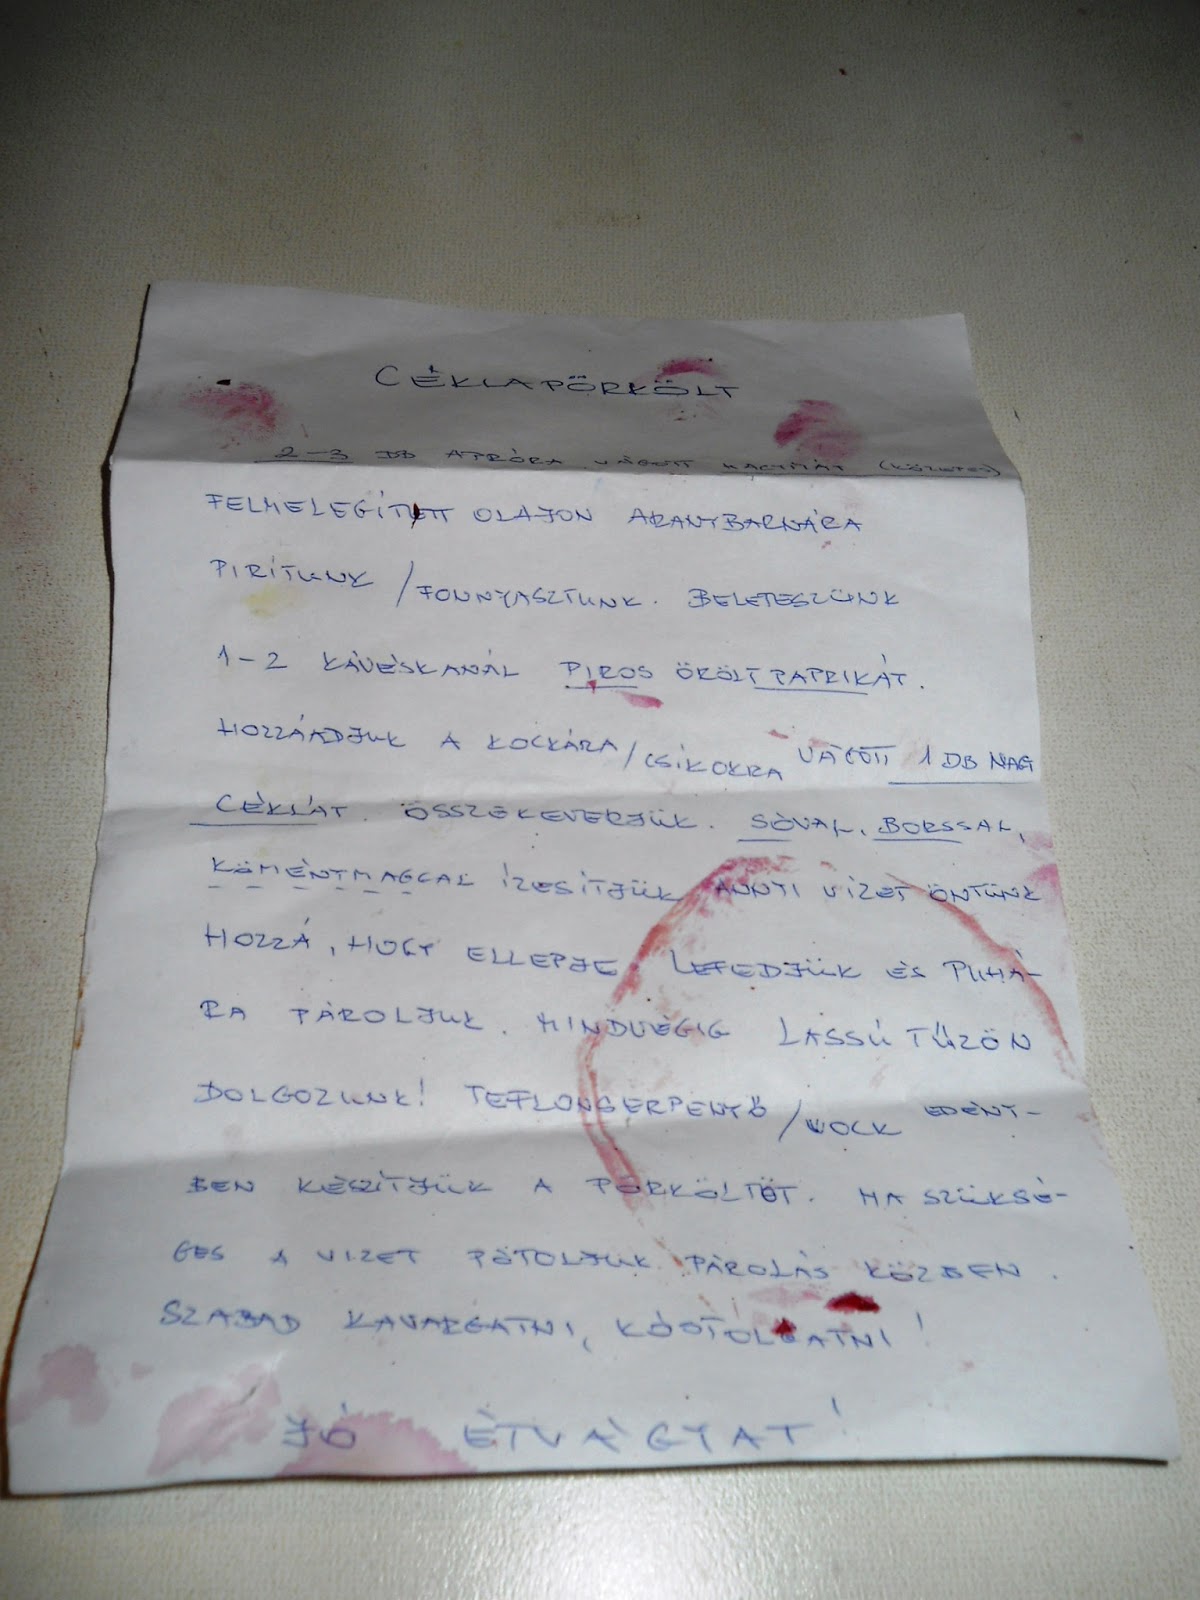 CÉKLAPÖRKÖLT
2-3 DB APRÓRA VÁGOTT HAGYMÁT (KÖZEPES)
FELMELEGÍTETT OLAJON ARANYBARNÁRA
PIRÍTUNK /FONNYASZTUNK. BELETESZÜNK
1-2 KÁVÉSKANÁL PIROS ŐRÖLT PAPRIKÁT.
HOZZÁADJUK A KOCKÁRA/CSÍKOKRA VÁGOTT 1 DB NAGY
CÉKLÁT. ÖSSZEKEVERJÜK. SÓVAL, BORSSAL,
KÖMÉNYMAGGAL ÍZESÍTJÜK ANNYI VIZET ÖNTÜNK
HOZZÁ, HOGY ELLEPJE LEFEDJÜK ÉS PUHÁ-
RA PÁROLJUK. MINDVÉGIG LASSÚ TŰZÖN
DOLGOZUNK! TEFLONSERPENYŐ/WOCK EDÉNY-
BEN KÉSZÍTJÜK A PÖRKÖLTÖT. HA SZÜKSÉ-
GES A VIZET PÓTOLJUK PÁROLÁS KÖZBEN.
SZABAD KAVARGATNI, KÓSTOLGATNI!
JÓ ÉTVÁGYAT!